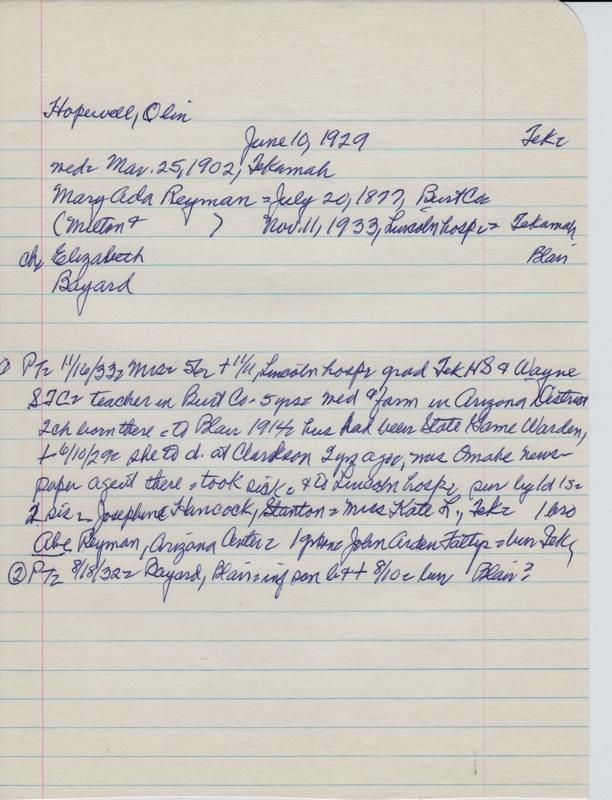 Hopewell, Olin
June 10, 1929 Tek=
med= Mar. 25, 1902, Tekamah
Mary Ada Reyman = July 20, 1877, Burt Co
(Milton + ) Nov. 11, 1933, Lincoln hosp= Tekamah
ch, Elizabeth Blair
Bayard
① PT= 11/16/33= Mrs= 56= + 11/11, Lincoln hosp= grad Tek HS & Wayne
STC= teacher in Burt Co- 5 yrs= med & farm in Arizona District
2 ch born there = to Blair 1914= hus had been State Game Warden,
+ 6/10/29= she to d. at Clarkson 2 yrs ago, was Omaha news-
paper agent there = took sick = & to Lincoln hosp= sur by 1d 1s=
2 sis = Josephine Hancock, Stanton = Mrs Kate L., Tek= 1 bro
Abe Reyman, Arizona Center= 1 John Arden = bur Tek,
② PT= 8/18/32= Bayard, Blair = inf son b & + 8/10= bur Blair?